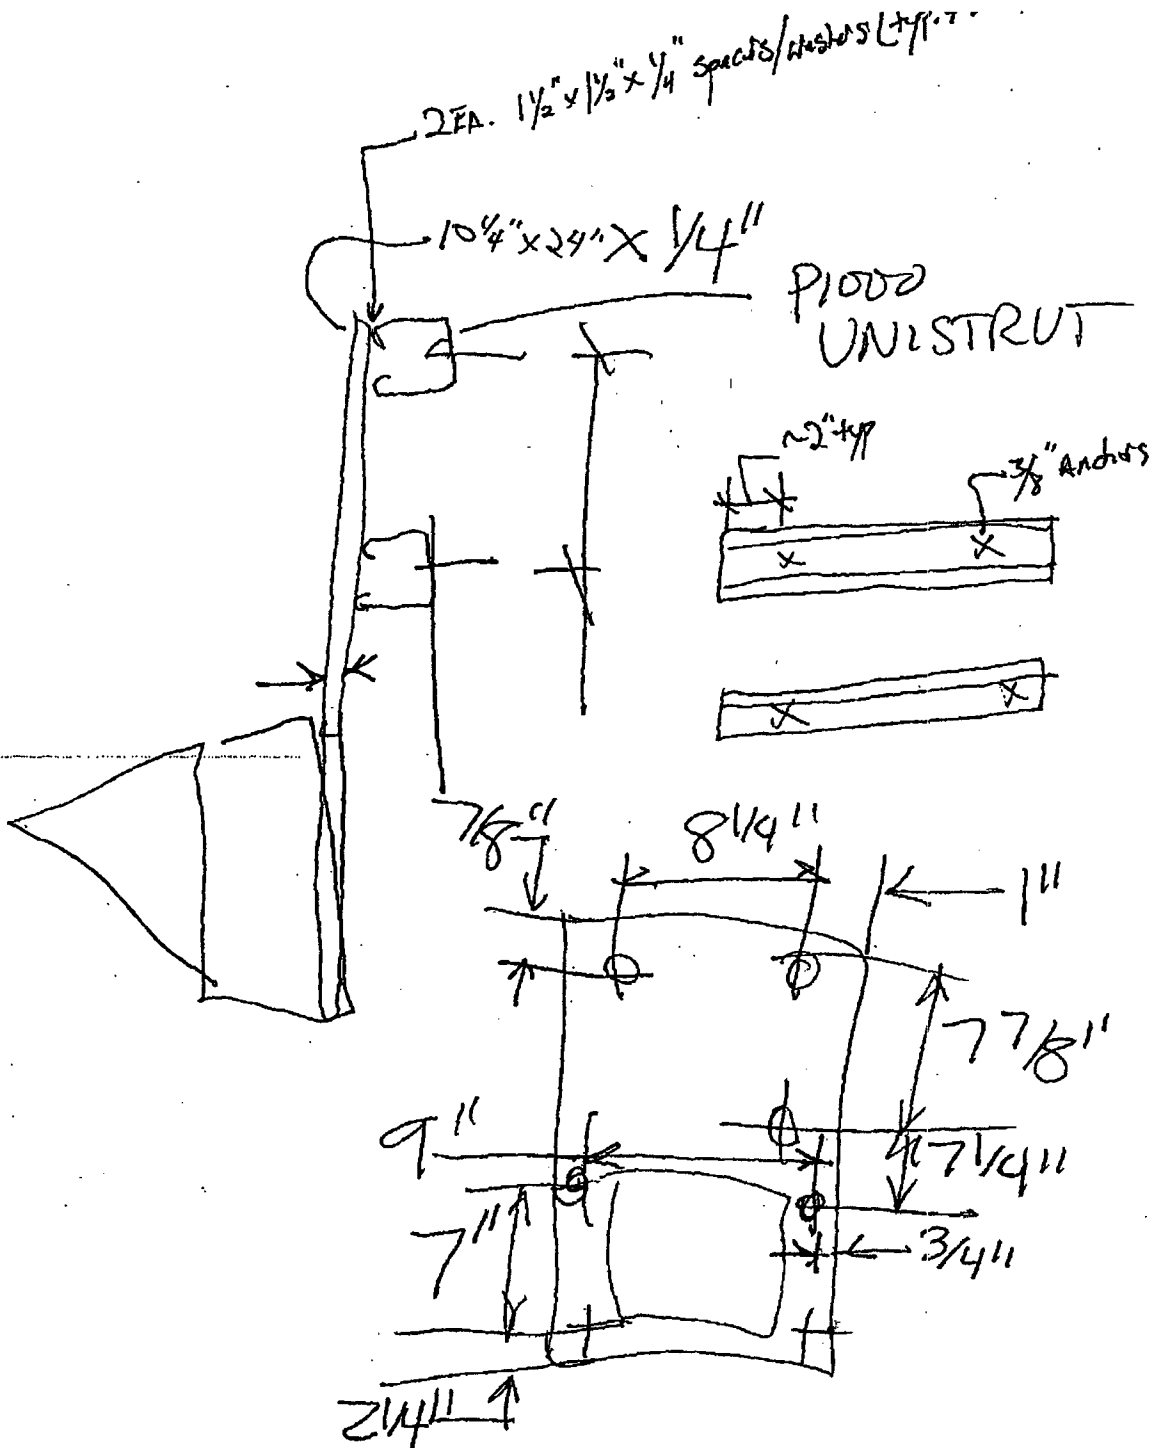 2 EA. 1½" x 1½" x ¼" spacers/washers (typ.)
10¼" x 24" x 1/4"
P1000
UNISTRUT
~2" typ
3/8" Anchors
7/8"
8 1/4"
1"
7 7/8"
9"
7 1/4"
7"
3/4"
2 1/4"